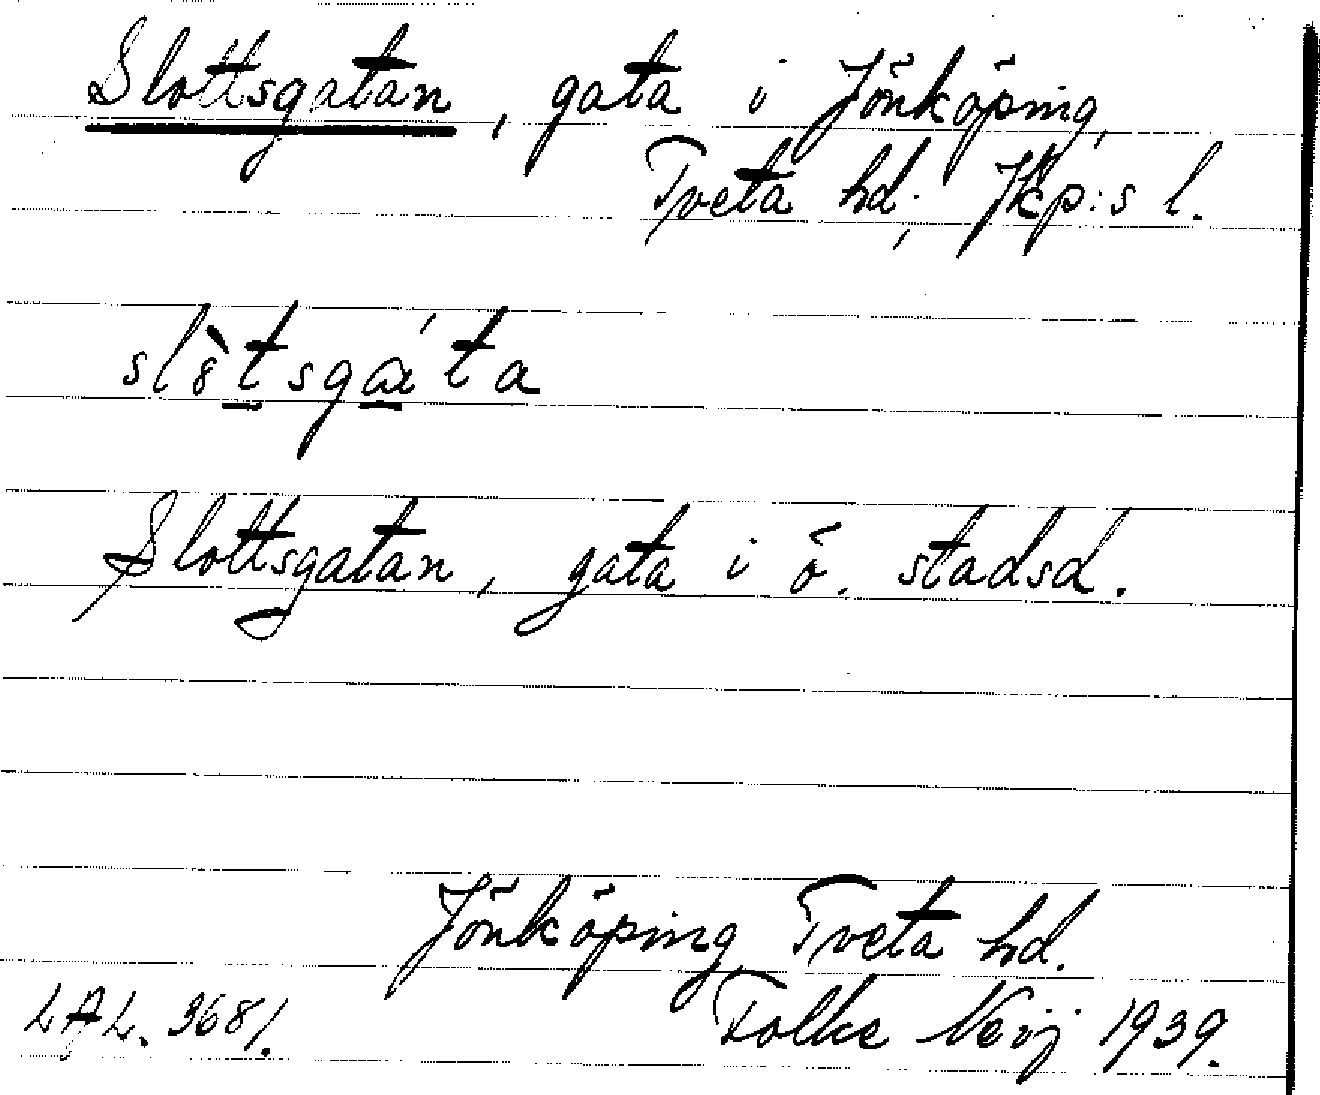 Slottsgatan, gata i Jönköping,
Tveta hd; Jkp:s l.
Slottsgatan, gata i ö. stadsd.
Jönköping, Tveta hd.
LAL. 3681. Folke Neij 1939.